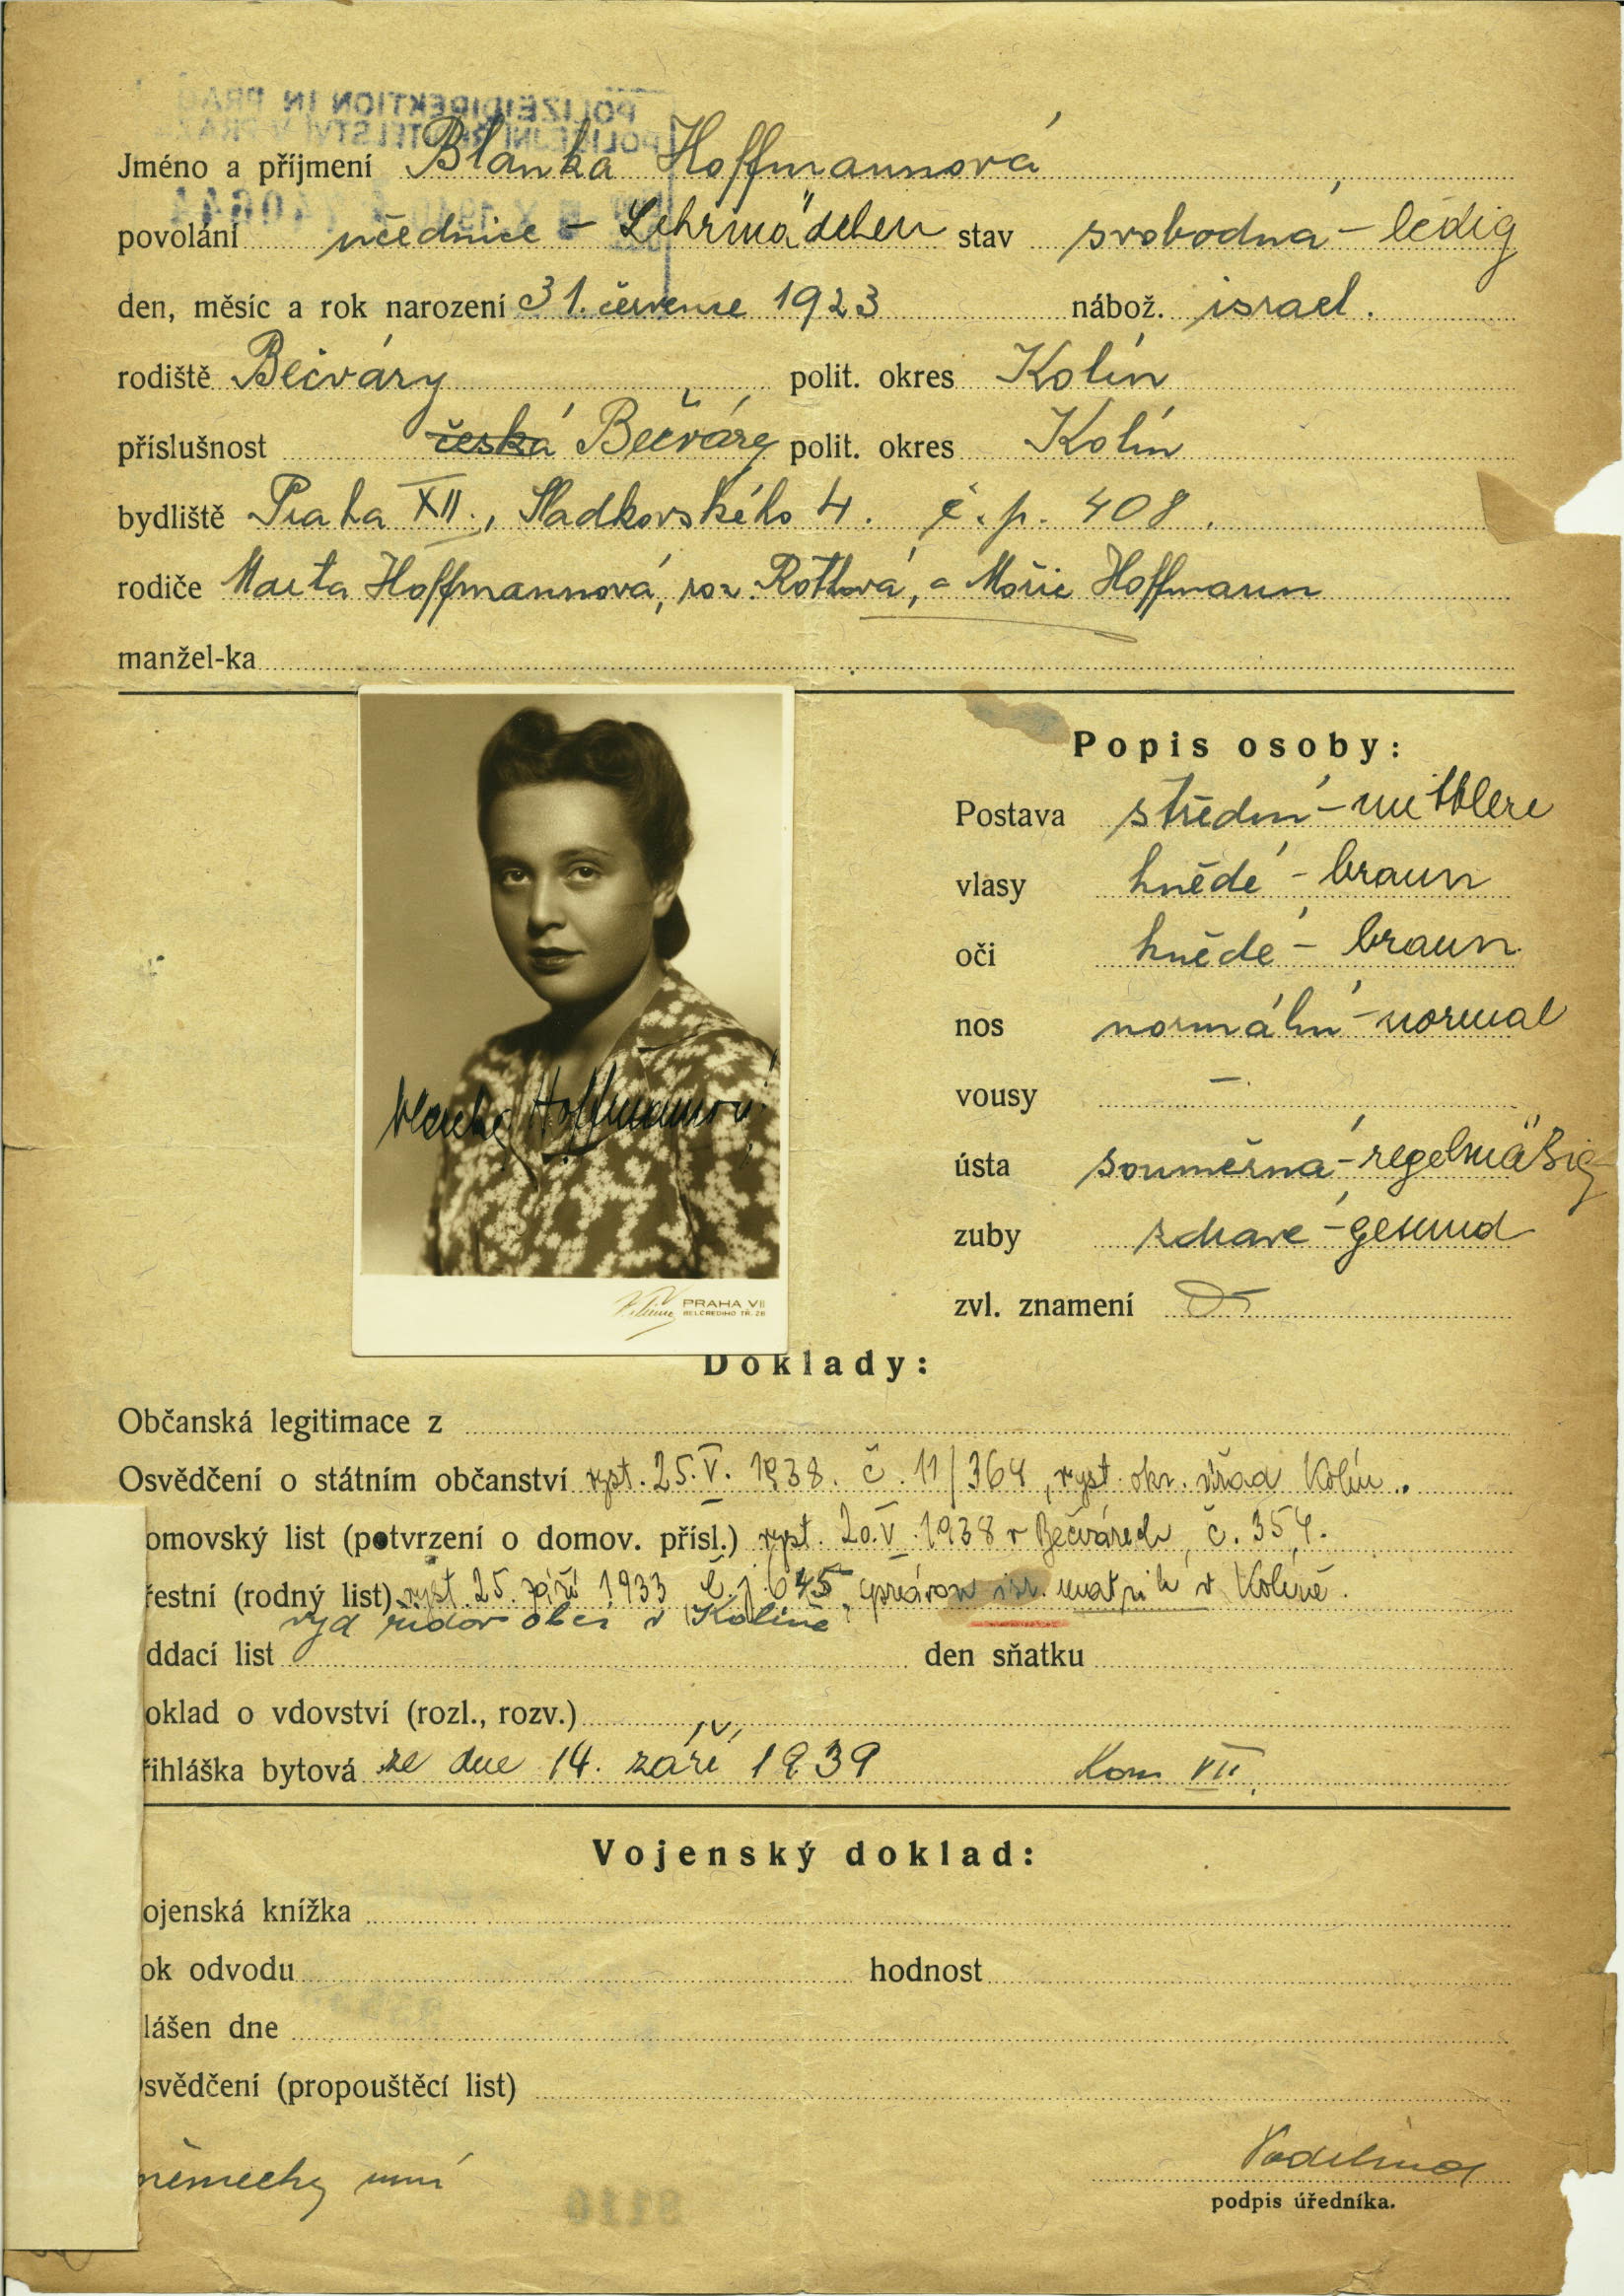 POLIZEIDIREKTION IN PRAG
Jméno a příjmení Blanka Hoffmannová
povolání učednice – Lehrmädchen stav svobodná – ledig
den, měsíc a rok narození 31. července 1923 nábož. israel.
rodiště Bečváry polit. okres Kolín
příslušnost česká Bečváry polit. okres Kolín
bydliště Praha XII., Sladkovského 4. č. p. 408.
rodiče Marta Hoffmannová, roz. Rottová, a Mořic Hoffmann
manžel-ka
Popis osoby:
Postava střední – mittlere
vlasy hnědé – braun
oči hnědé – braun
nos normální – normal
vousy –
ústa souměrná – regelmäßig
zuby zdravé – gesund
zvl. znamení
Blanka Hoffmannová
PRAHA VII
BELCREDIHO TŘ. 28
Doklady:
Občanská legitimace z
Osvědčení o státním občanství vyst. 25. V. 1938. č. 11/364, vyst. okr. úřad Kolín.
omovský list (potvrzení o domov. přísl.) vyst. 20. V. 1938 v Bečvárech, č. 354.
řestní (rodný list) vyst. 25. září 1933 č. j. 645, správou isr. matrik v Kolíně.
vyd židov obcí v Kolíně
ddací list den sňatku
oklad o vdovství (rozl., rozv.)
řihláška bytová ze dne 14. září 1939 Kom VII.
Vojenský doklad:
ojenská knížka
ok odvodu hodnost
lášen dne
svědčení (propouštěcí list)
německy umí
podpis úředníka.